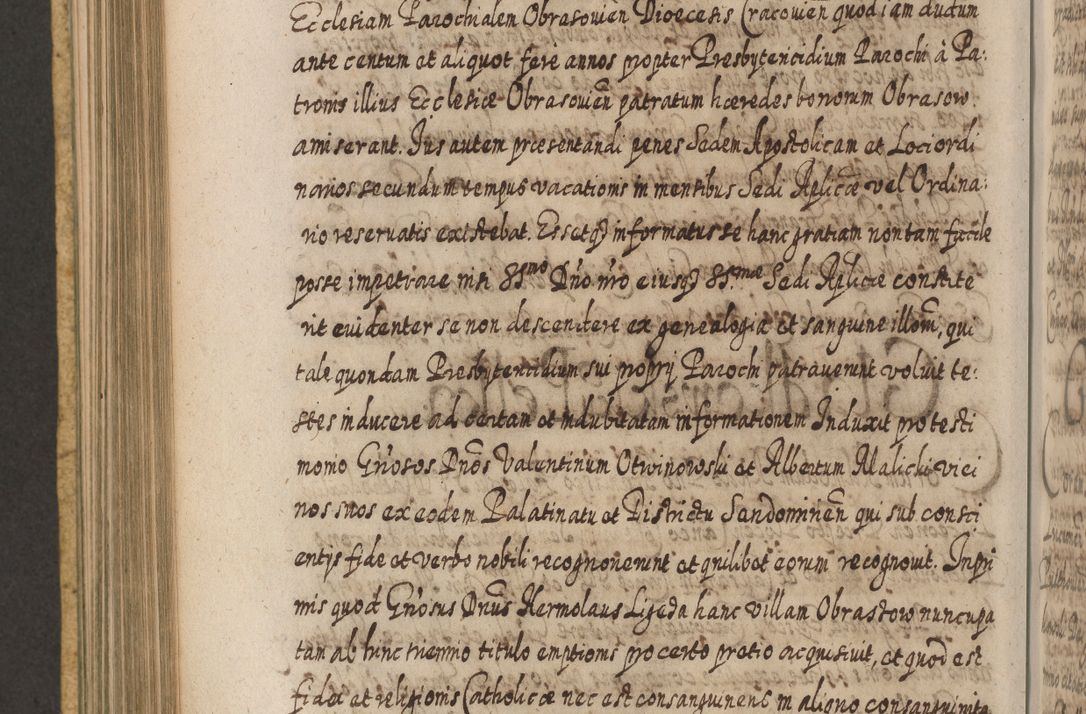 Ecclesiam Parochialem Obrasovien̄ Dioecesis Cracovien̄ quod iam dudum
ante centum et aliquot fere annos propter Presbytericidium Parochi à Pa:
tronis illius Ecclesiæ Obrasovien̄ patratum hœredes bonorum Obrasow
amiserant. Jus autem præsentandi penes Sedem Apostolicam et Loci ordi
narios secundum tempus vacationis in mensibus Sedi Aplicæ vel Ordina:
rio reservatis existebat. Essetq3 informatus se hanc gratiam non tam facile
posse impetrare nisi SSmo Dno nro eiusq3 SS.mæ Sedi Aplicæ constite
rit evidenter se non descendere ex genealogia et sanguine illorū, qui
tale quondam Presbytericidium sui proprij Parochi patraverunt voluit te:
stes inducere ad certam et indubitatam informationem Induxit pro testi
monio Gnosos Dnos Valentinum Otwinowski et Albertum Malicki vici
nos suos ex eodem Palatinatu et Districtu Sendomirien̄ qui sub consci
entijs fide et verbo nobili recognoverunt et quilibet eorum recognovit. Inpri
mis quod Gnosus Dnus Hermolaus Ligęza hanc villam Obrastow nuncupa
tam ab hinc triennio titulo emptionis pro certo pretio acquisivit, et quod est
fidei et religionis Catholicæ nec est consanguineus in aliquo consanguinita